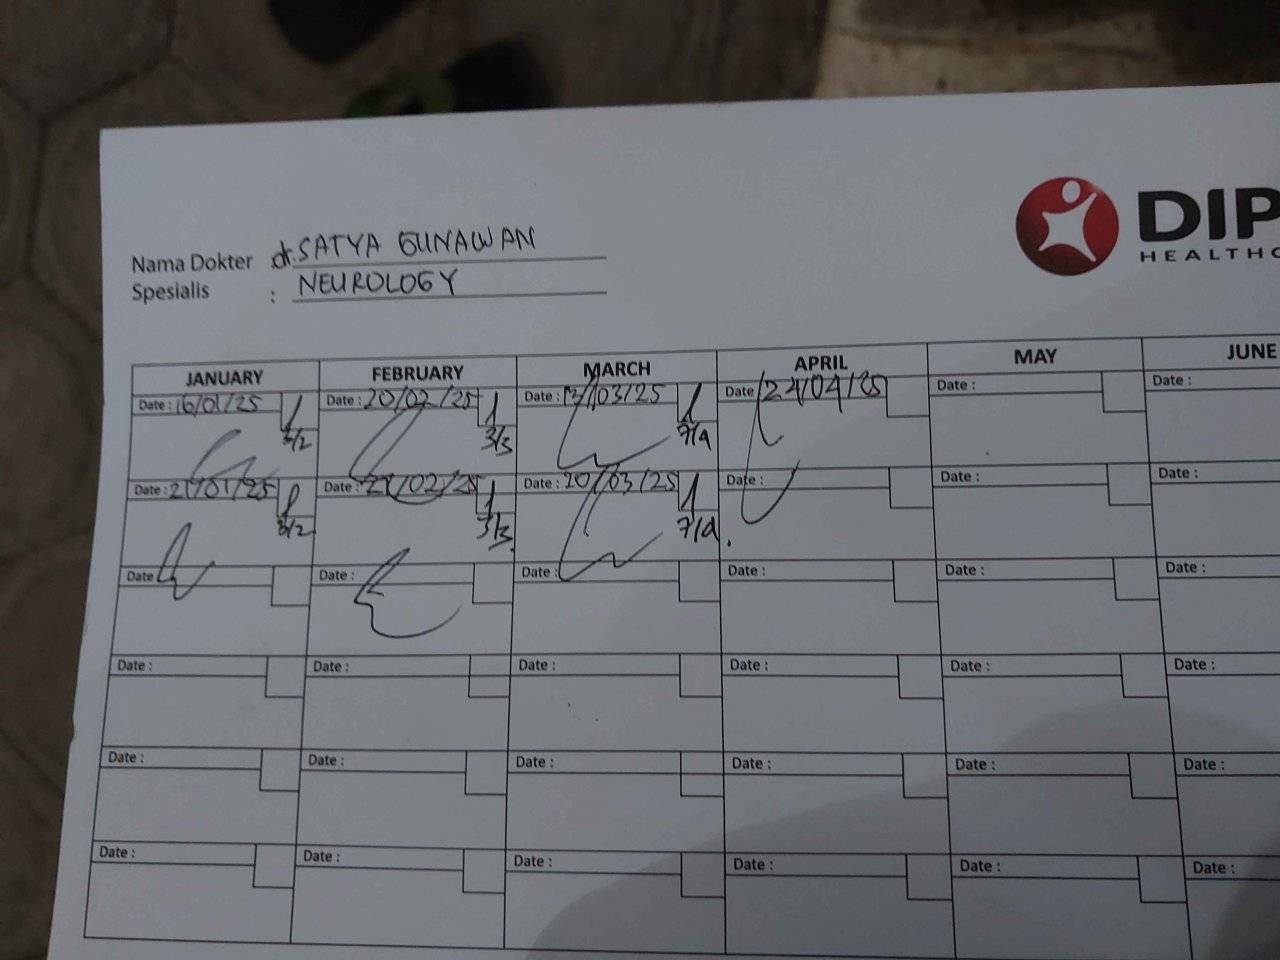 DIP
HEALTHC
Nama Dokter dr. SATYA GUNAWAN
Spesialis : NEUROLOGY
JANUARY FEBRUARY MARCH APRIL MAY JUNE
Date : 16/01/25 Date : 20/02/25 Date : 13/03/25 Date 24/04/25 Date : Date :
3/2 3/3 7/4
Date : 21/01/25 Date : 27/02/25 Date : 20/03/25 Date : Date : Date :
3/2 3/3 7/4
Date Date : Date : Date : Date : Date :
Date : Date : Date : Date : Date : Date :
Date : Date : Date : Date : Date : Date :
Date : Date : Date : Date : Date : Date :